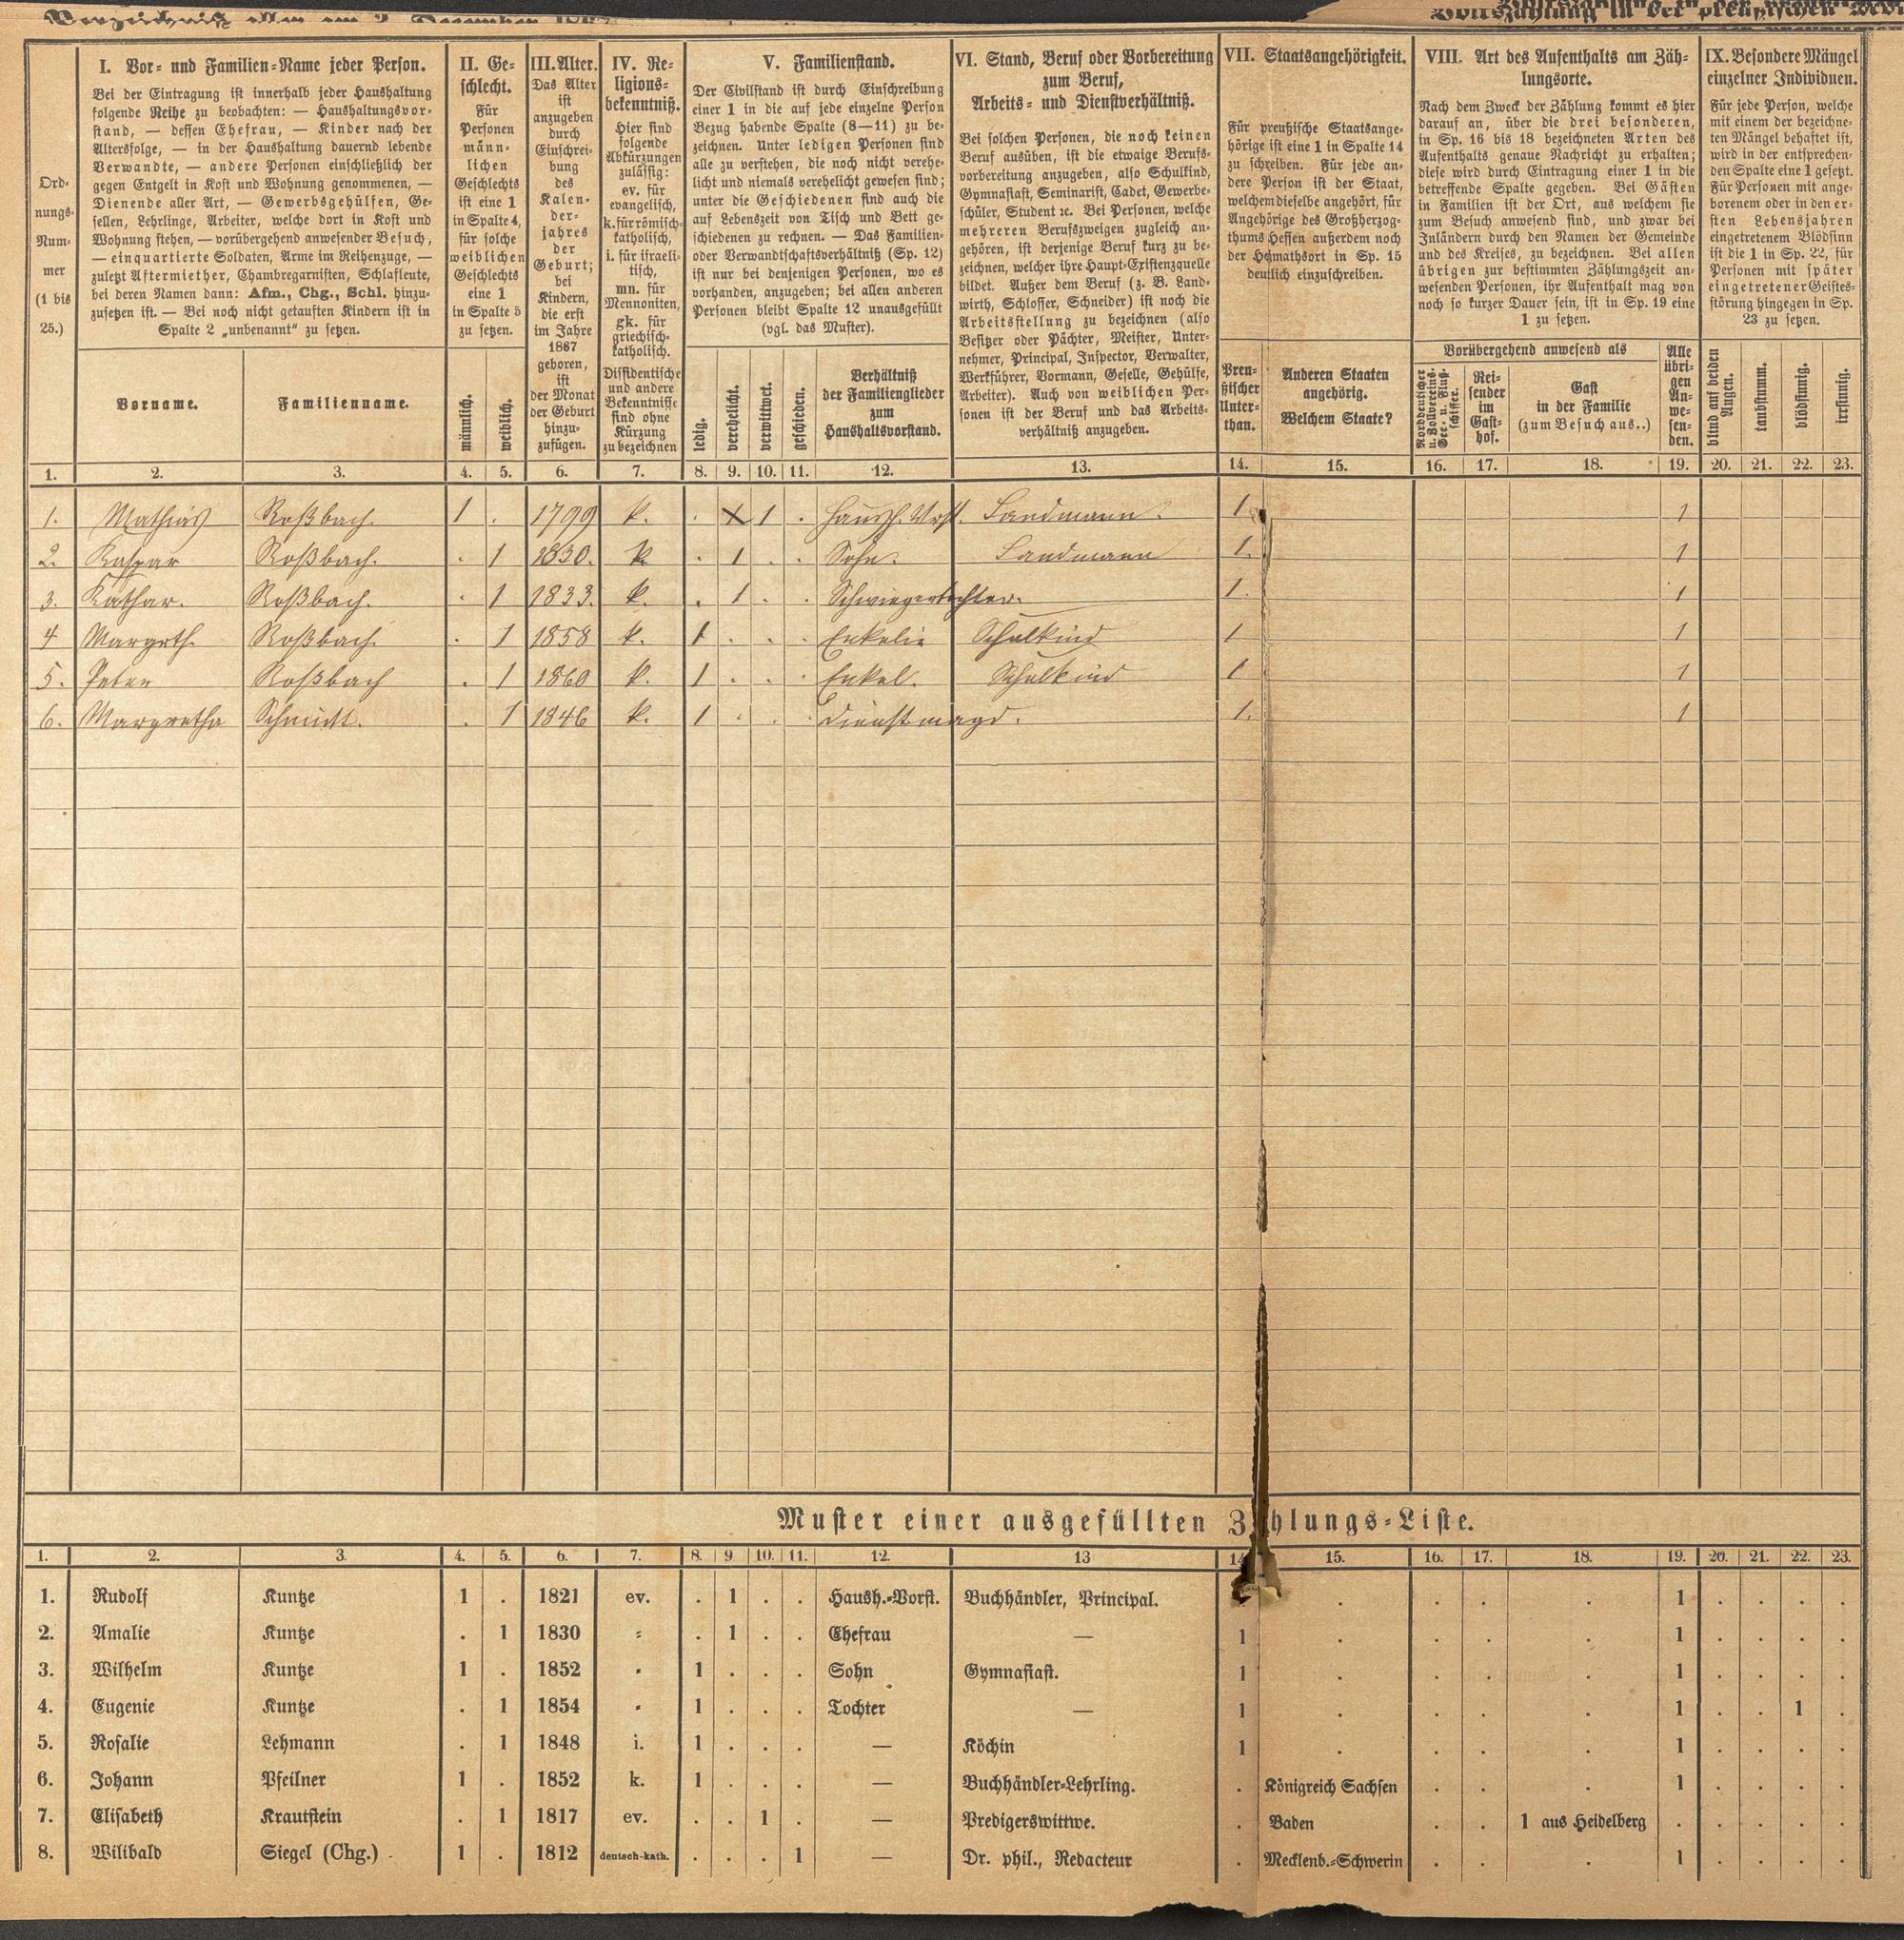 Verzeichniß aller am 3. December
I. Vor- und Familien-Name jeder Person.
Bei der Eintragung ist innerhalb jeder Haushaltung
folgende Reihe zu beobachten: — Haushaltungsvor-
stand, — dessen Ehefrau, — Kinder nach der
Altersfolge, — in der Haushaltung dauernd lebende
Verwandte, — andere Personen einschließlich der
gegen Entgelt in Kost und Wohnung genommenen, —
Dienende aller Art, — Gewerbsgehülfen, Ge-
sellen, Lehrlinge, Arbeiter, welche dort in Kost und
Wohnung stehen, — vorübergehend anwesender Besuch,
— einquartierte Soldaten, Arme im Reihenzuge, —
zuletzt Aftermiether, Chambregarnisten, Schlafleute,
bei deren Namen dann: Afm., Chg., Schl. hinzu-
zusetzen ist. — Bei noch nicht getauften Kindern ist in
Spalte 2 „unbenannt“ zu setzen.
Ord-
nungs-
Num-
mer
(1 bis
25.)
Vorname.
Familienname.
II. Ge-
schlecht.
Für
Personen
männ-
lichen
Geschlechts
ist eine 1
in Spalte 4,
für solche
weiblichen
Geschlechts
eine 1
in Spalte 5
zu setzen.
männlich.
weiblich.
III. Alter.
Das Alter
ist
anzugeben
durch
Einschrei-
bung
des
Kalen-
der-
jahres
der
Geburt;
bei
Kindern,
die erst
im Jahre
1867
geboren,
ist
der Monat
der Geburt
hinzu-
zufügen.
IV. Re-
ligions-
bekenntniß.
Hier sind
folgende
Abkürzungen
zulässig:
ev. für
evangelisch,
k. für römisch-
katholisch,
i. für israeli-
tisch,
mn. für
Mennoniten,
gk. für
griechisch-
katholisch.
Dissidentische
und andere
Bekenntnisse
sind ohne
Kürzung
zu bezeichnen
V. Familienstand.
Der Civilstand ist durch Einschreibung
einer 1 in die auf jede einzelne Person
Bezug habende Spalte (8—11) zu be-
zeichnen. Unter ledigen Personen sind
alle zu verstehen, die noch nicht verehe-
licht und niemals verehelicht gewesen sind;
unter die Geschiedenen sind auch die
auf Lebenszeit von Tisch und Bett ge-
schiedenen zu rechnen. — Das Familien-
oder Verwandtschaftsverhältniß (Sp. 12)
ist nur bei denjenigen Personen, wo es
vorhanden, anzugeben; bei allen anderen
Personen bleibt Spalte 12 unausgefüllt
(vgl. das Muster).
ledig.
verehelicht.
verwittwet.
geschieden.
Verhältniß
der Familienglieder
zum
Haushaltsvorstand.
VI. Stand, Beruf oder Vorbereitung
zum Beruf,
Arbeits- und Dienstverhältniß.
Bei solchen Personen, die noch keinen
Beruf ausüben, ist die etwaige Berufs-
vorbereitung anzugeben, also Schulkind,
Gymnasiast, Seminarist, Cadet, Gewerbe-
schüler, Student ꝛc. Bei Personen, welche
mehreren Berufszweigen zugleich an-
gehören, ist derjenige Beruf kurz zu be-
zeichnen, welcher ihre Haupt-Existenzquelle
bildet. Außer dem Beruf (z. B. Land-
wirth, Schlosser, Schneider) ist noch die
Arbeitsstellung zu bezeichnen (also
Besitzer oder Pächter, Meister, Unter-
nehmer, Principal, Inspector, Verwalter,
Werkführer, Vormann, Geselle, Gehülfe,
Arbeiter). Auch von weiblichen Per-
sonen ist der Beruf und das Arbeits-
verhältniß anzugeben.
VII. Staatsangehörigkeit.
Für preußische Staatsange-
hörige ist eine 1 in Spalte 14
zu schreiben. Für jede an-
dere Person ist der Staat,
welchem dieselbe angehört, für
Angehörige des Großherzog-
thums Hessen außerdem noch
der Heimathsort in Sp. 15
deutlich einzuschreiben.
Preu-
ßischer
Unter-
than.
Anderen Staaten
angehörig.
Welchem Staate?
VIII. Art des Aufenthalts am Zäh-
lungsorte.
Nach dem Zweck der Zählung kommt es hier
darauf an, über die drei besonderen,
in Sp. 16 bis 18 bezeichneten Arten des
Aufenthalts genaue Nachricht zu erhalten;
diese wird durch Eintragung einer 1 in die
betreffende Spalte gegeben. Bei Gästen
in Familien ist der Ort, aus welchem sie
zum Besuch anwesend sind, und zwar bei
Inländern durch den Namen der Gemeinde
und des Kreises, zu bezeichnen. Bei allen
übrigen zur bestimmten Zählungszeit an-
wesenden Personen, ihr Aufenthalt mag von
noch so kurzer Dauer sein, ist in Sp. 19 eine
1 zu setzen.
Vorübergehend anwesend als
Norddeutscher
u. Zollvereins-
See- u. Fluß-
schiffer.
Rei-
sender
im
Gast-
hof.
Gast
in der Familie
(zum Besuch aus..)
Alle
übri-
gen
An-
we-
sen-
den.
IX. Besondere Mängel
einzelner Individuen.
Für jede Person, welche
mit einem der bezeichne-
ten Mängel behaftet ist,
wird in der entsprechen-
den Spalte eine 1 gesetzt.
Für Personen mit ange-
borenem oder in den er-
sten Lebensjahren
eingetretenem Blödsinn
ist die 1 in Sp. 22, für
Personen mit später
eingetretener Geistes-
störung hingegen in Sp.
23 zu setzen.
blind auf beiden
Augen.
taubstumm.
blödsinnig.
irrsinnig.
1. 2. 3. 4. 5. 6. 7. 8. 9. 10. 11. 12. 13. 14. 15. 16. 17. 18. 19. 20. 21. 22. 23.
1. Mathias Roßbach. 1 . 1799 k. . X 1 . Haush. Vrst. Landmann. 1 1
2. Kaspar Roßbach. . 1 1830. k. . 1 . . Sohn. Landmann 1. 1
3. Kathar. Roßbach. . 1 1833. k. . 1 . . Schwiegertochter. 1. 1
4 Margrth. Roßbach. . 1 1858 k. 1 . . . Enkelin Schulkind 1 1
5. Peter Roßbach . 1 1860 k. 1 . . . Enkel. Schulkind 1 1
6. Margretha Schmidt. . 1 1846 k. 1 . . . Dienstmagd. 1. 1
Muster einer ausgefüllten Zählungs-Liste.
1. 2. 3. 4. 5. 6. 7. 8. 9 10. 11. 12. 13 14 15. 16. 17. 18. 19. 20. 21. 22. 23.
1. Rudolf Kuntze 1 . 1821 ev. . 1 . . Haush.-Vorst. Buchhändler, Principal. . . . . 1 . . . .
2. Amalie Kuntze . 1 1830 " . 1 . . Ehefrau — 1 . . . . 1 . . . .
3. Wilhelm Kuntze 1 . 1852 " 1 . . . Sohn Gymnasiast. 1 . . . . 1 . . . .
4. Eugenie Kuntze . 1 1854 " 1 . . . Tochter — 1 . . . . 1 . . 1 .
5. Rosalie Lehmann . 1 1848 i. 1 . . . — Köchin 1 . . . . 1 . . . .
6. Johann Pfeilner 1 . 1852 k. 1 . . . — Buchhändler-Lehrling. . Königreich Sachsen . . . 1 . . . .
7. Elisabeth Krautstein . 1 1817 ev. . . 1 . — Predigerswittwe. . Baden . . 1 aus Heidelberg . . . . .
8. Wilibald Siegel (Chg.) 1 . 1812 deutsch-kath. . . . 1 — Dr. phil., Redacteur . Mecklenb.-Schwerin . . . 1 . . . .